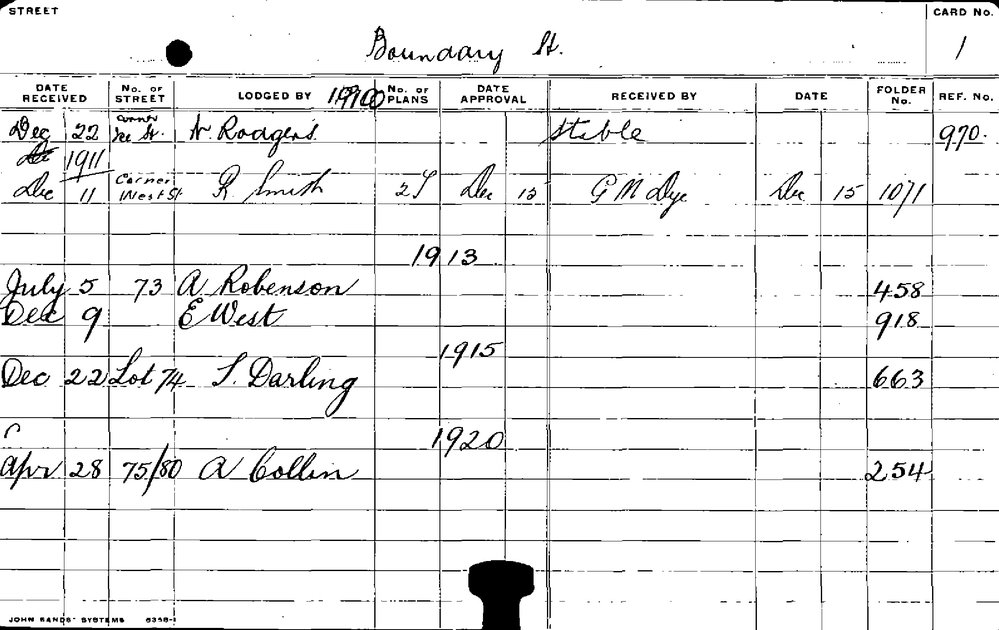 STREET
CARD No.
Boundary St.
1
DATE RECEIVED
No. OF STREET
LODGED BY
No. OF PLANS
DATE APPROVAL
RECEIVED BY
DATE
FOLDER No.
REF. No.
1910
Dec 22 corner St. Rodgers Stable 970.
1911
Dec 11 Corner West St R Smith 2 Dec 15 G M Dye Dec 15 1071
1913
July 5 73 A Robenson 458
Dec 9 E West 918
1915
Dec 22 Lot 74 Darling 663
1920
Apr 28 75/80 A Collin 254
JOHN SANDS' SYSTEMS